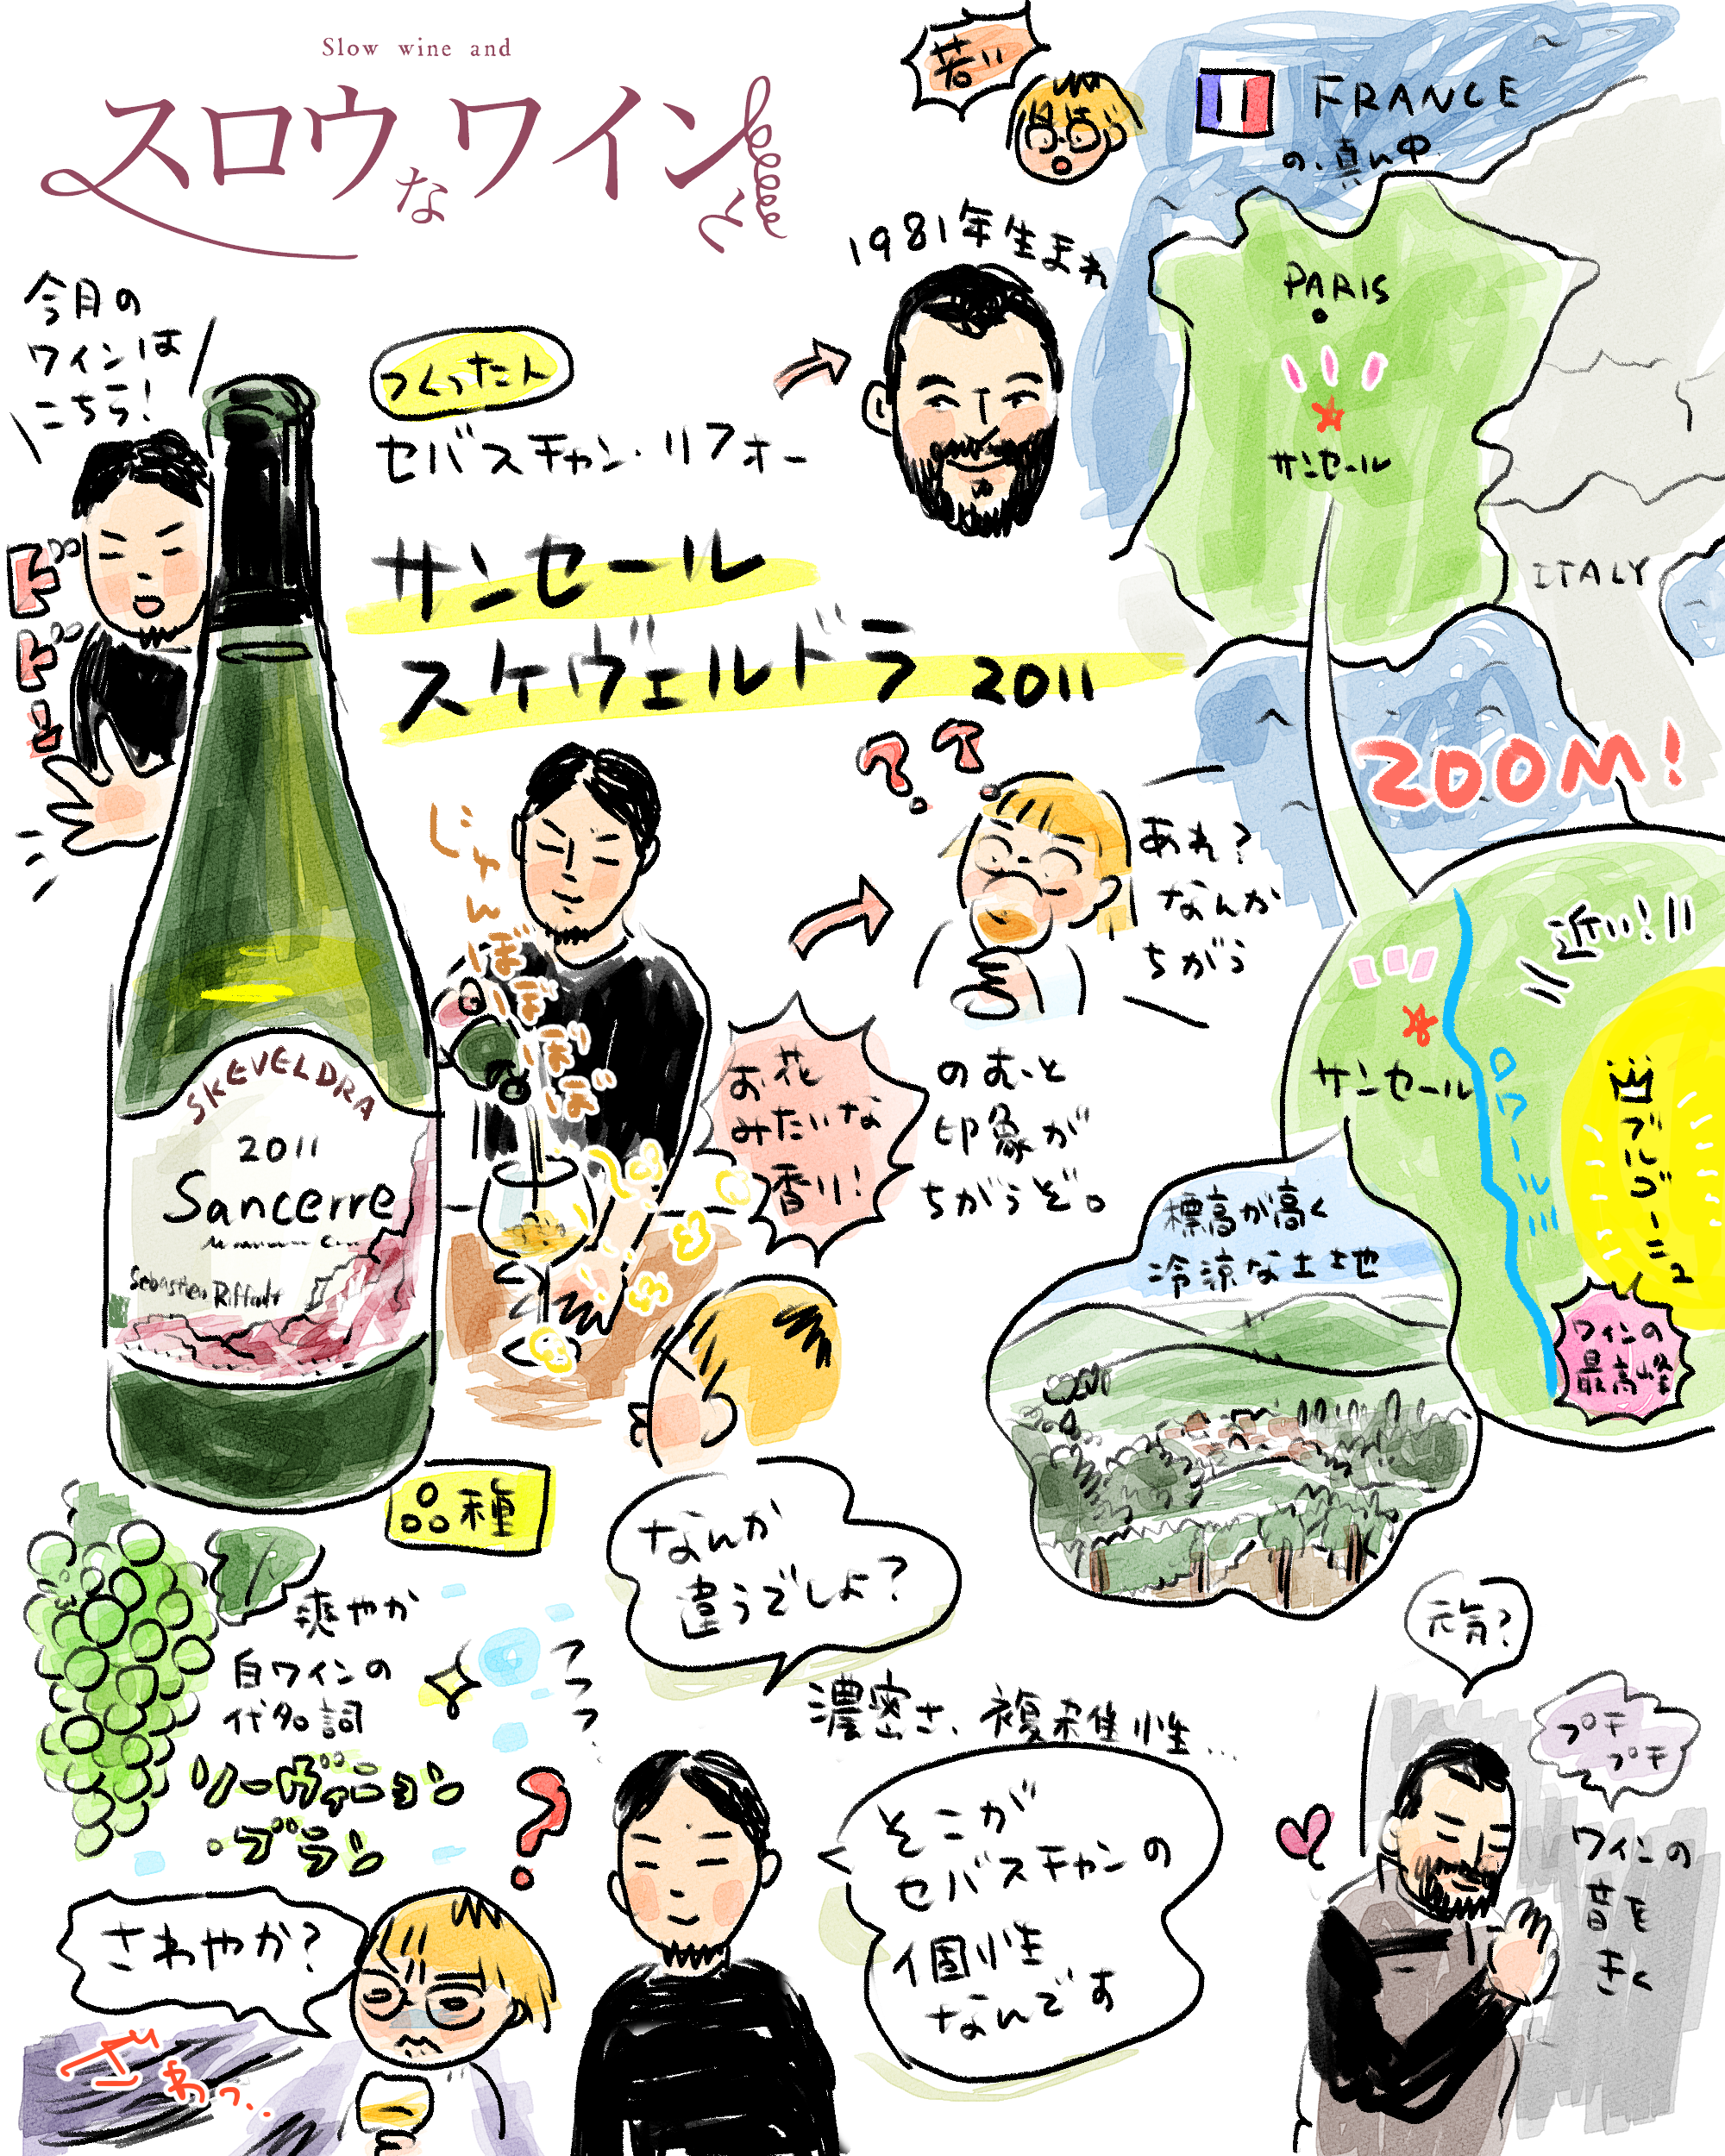 Slow wine and
スロウなワインと
今月の
ワインは
こちら!
ドドーン
つくった人
セバスチャン・リフォー
サンセール
スケヴェルドラ 2011
若い
1981年生まれ
FRANCE
の、真ん中
PARIS
サンセール
ITALY
ZOOM!
近い!!!
サンセール
ロワール川
ブルゴーニュ
ワインの
最高峰
標高が高く
冷涼な土地
SKEVELDRA
2011
Sancerre
Sebastien Riffault
じゃんぼぼぼぼぼ
お花
みたいな
香り!
??
あれ?
なんか
ちがう
のむと
印象が
ちがうぞ。
なんか
違うでしょ?
品種
爽やか
白ワインの
代名詞
ソーヴィニヨン
・ブラン
フフフ
?
さわやか?
ざわっ..
濃密さ、複雑性...
そこが
セバスチャンの
個性
なんです
元気?
プチ
プチ
ワインの
音を
きく